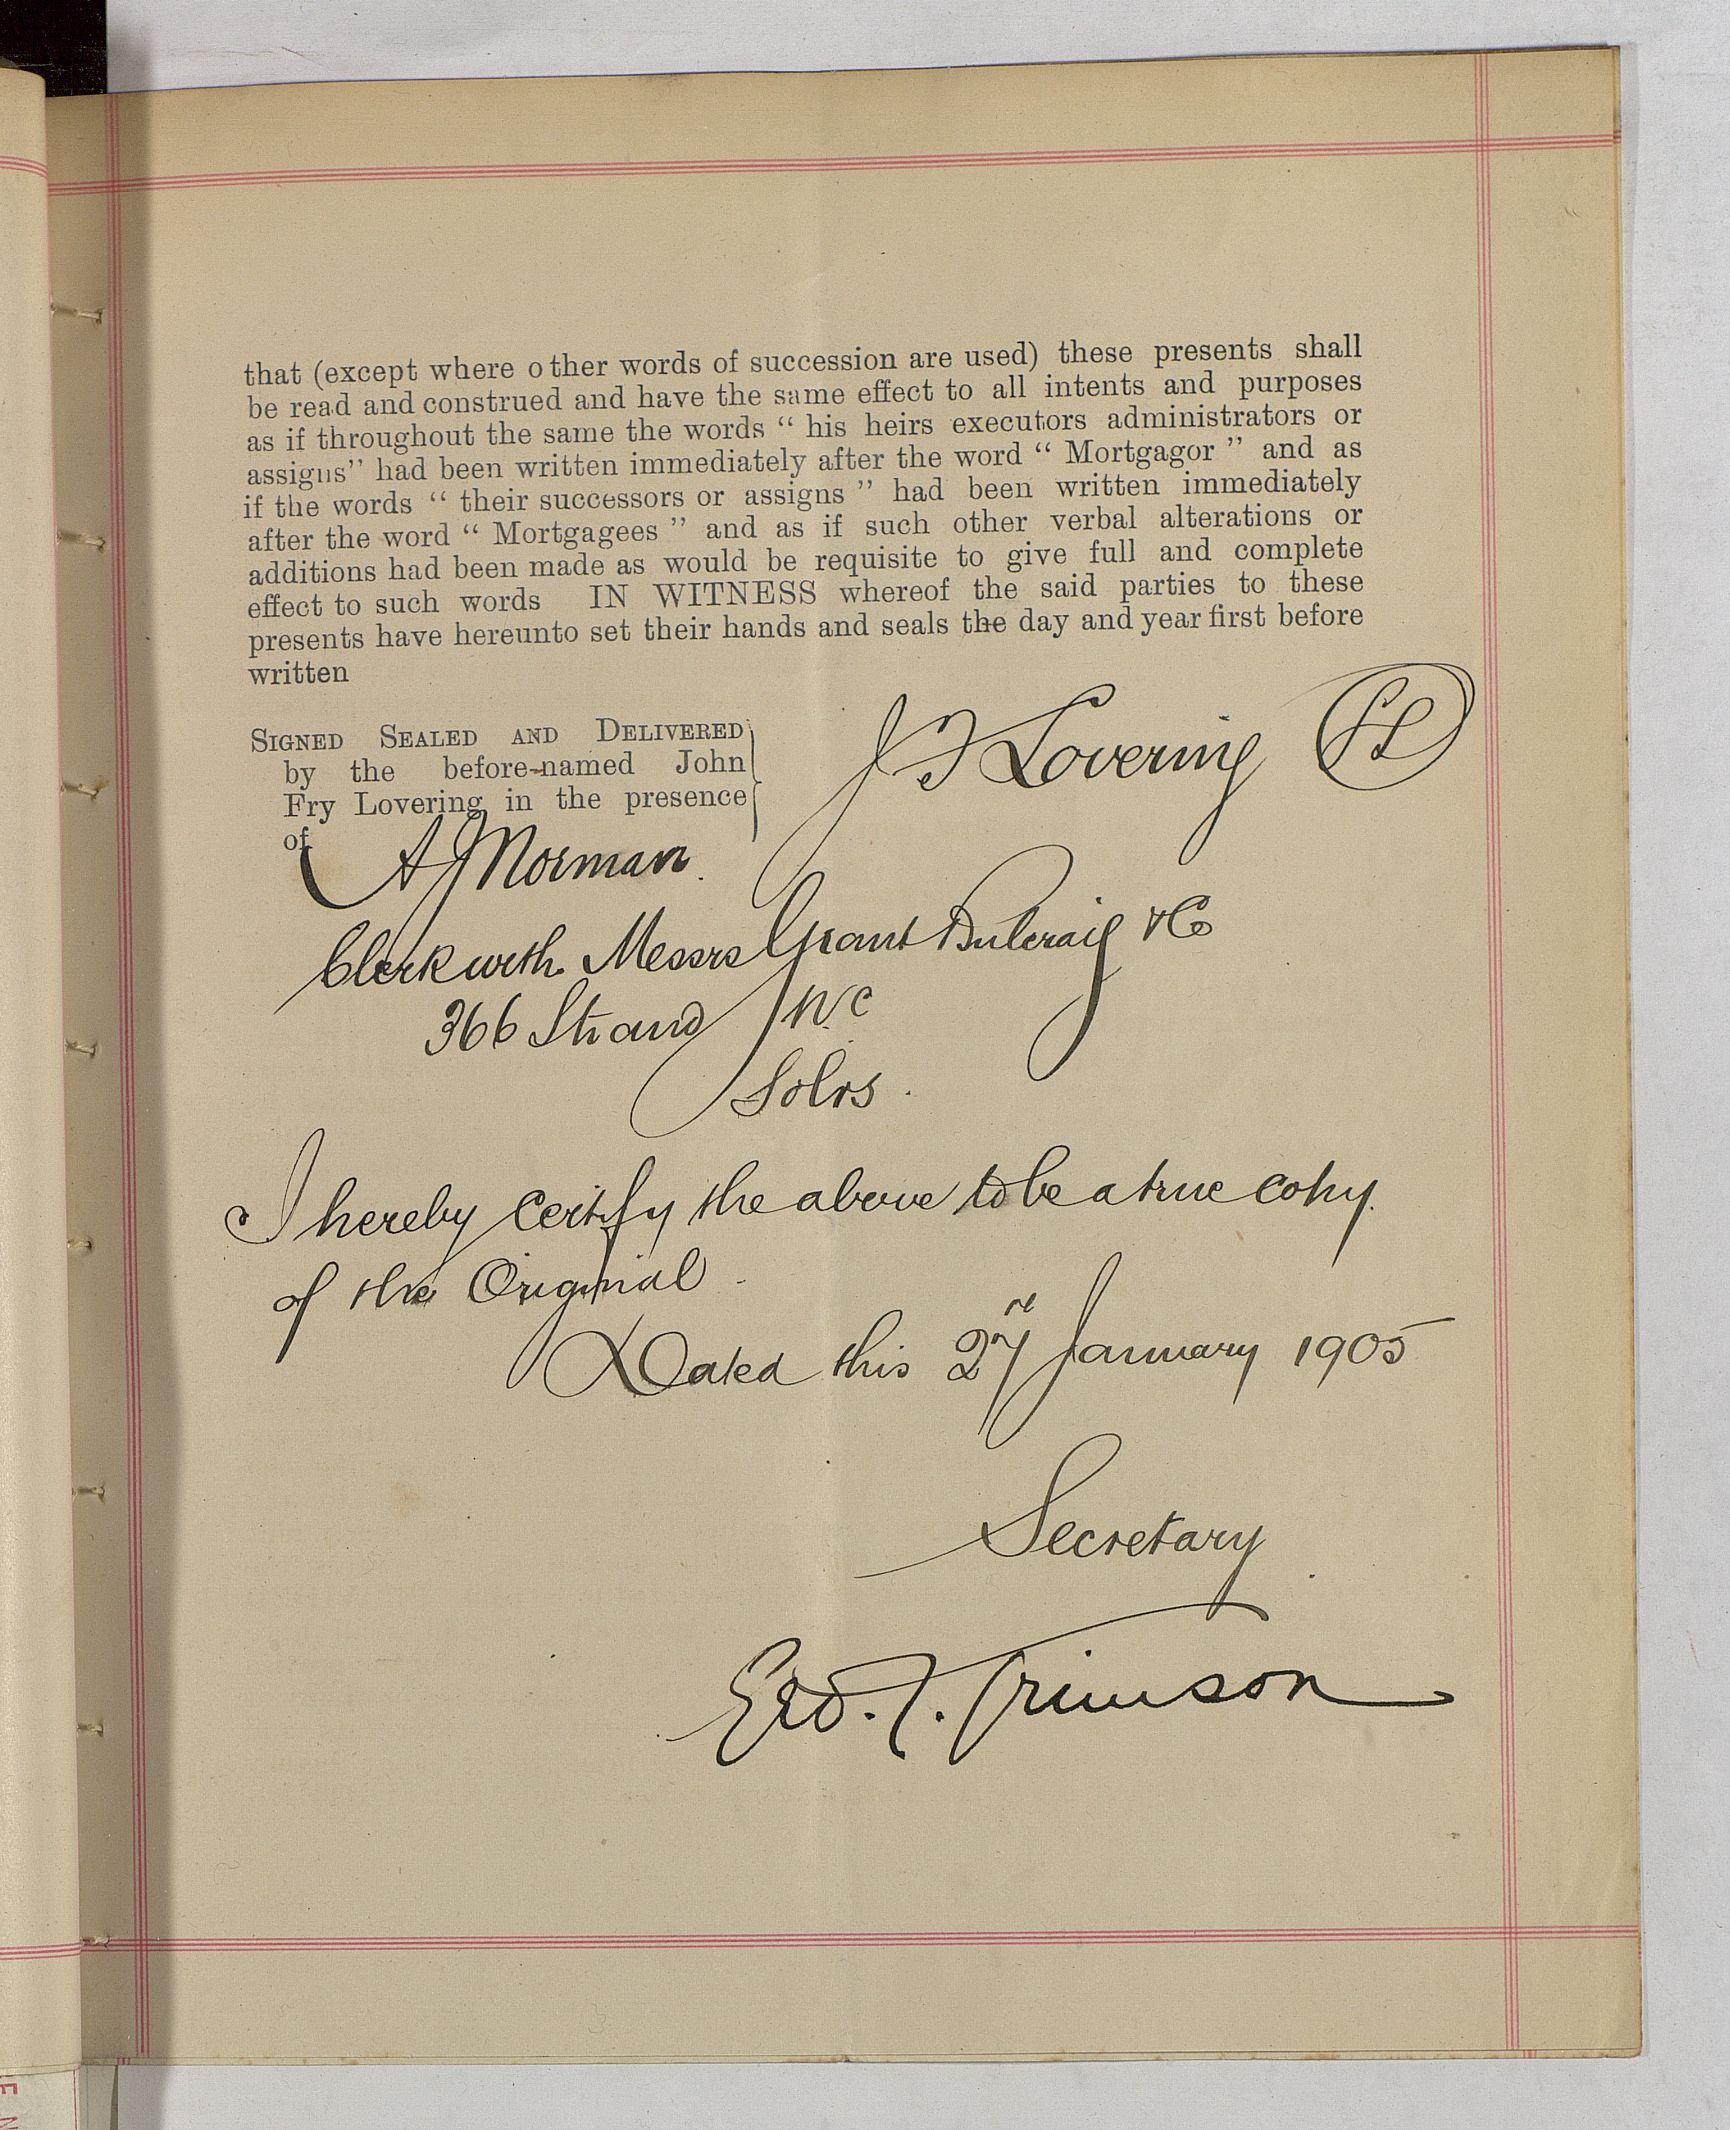 that (except where other words of succession are used) these presents shall
be read and construed and have the same effect to all intents and purposes
as if throughout the same the words “ his heirs executors administrators or
assigns” had been written immediately after the word “ Mortgagor ” and as
if the words “ their successors or assigns ” had been written immediately
after the word “ Mortgagees ” and as if such other verbal alterations or
additions had been made as would be requisite to give full and complete
effect to such words IN WITNESS whereof the said parties to these
presents have hereunto set their hands and seals the day and year first before
written
SIGNED SEALED AND DELIVERED
by the before-named John
Fry Lovering in the presence
of
J F Lovering LS
A J Norman.
Clerk with Messrs Grant Bulcraig & Co
366 Strand W.C
Solrs.
I hereby certify the above to be a true copy.
of the Original.
Dated this 27 January 1905
Secretary
Geo. T. Trimson